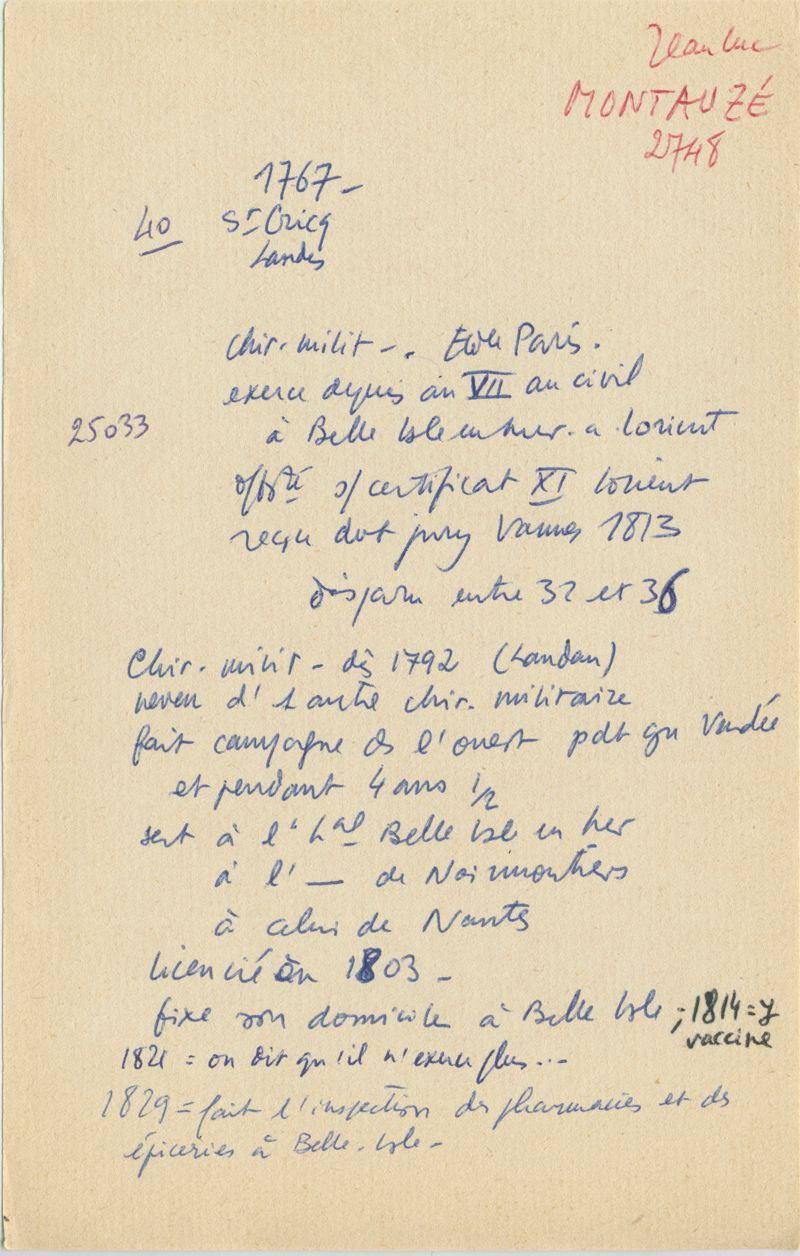 Jean Luc
MONTAUZÉ
2748
1767 –
40 St Cricq
Landes
chir. milit – . Ecole Paris.
exerce depuis an VII au civil
25033 à Belle Isle en mer. a Lorient
s/certificat XI Lorient
reçu dvt jury Vannes 1813
disparu entre 32 et 36
Chir. milit – dès 1792 (Landau)
neveu d' 1 autre chir. militaire
fait campagne ds l'ouest pdt Vendée
et pendant 4 ans 1/2
sert à l' hal Belle Isle en Mer
à l' — de Noirmoutiers
à celui de Nantes
licencié en 1803 –
fixe son domicile à Belle Isle ; 1814 = y
vaccine
1821 = on dit qu'il n'exerce plus...
1829 = fait l'inspection des pharmacies et des
épiceries à Belle-Isle –